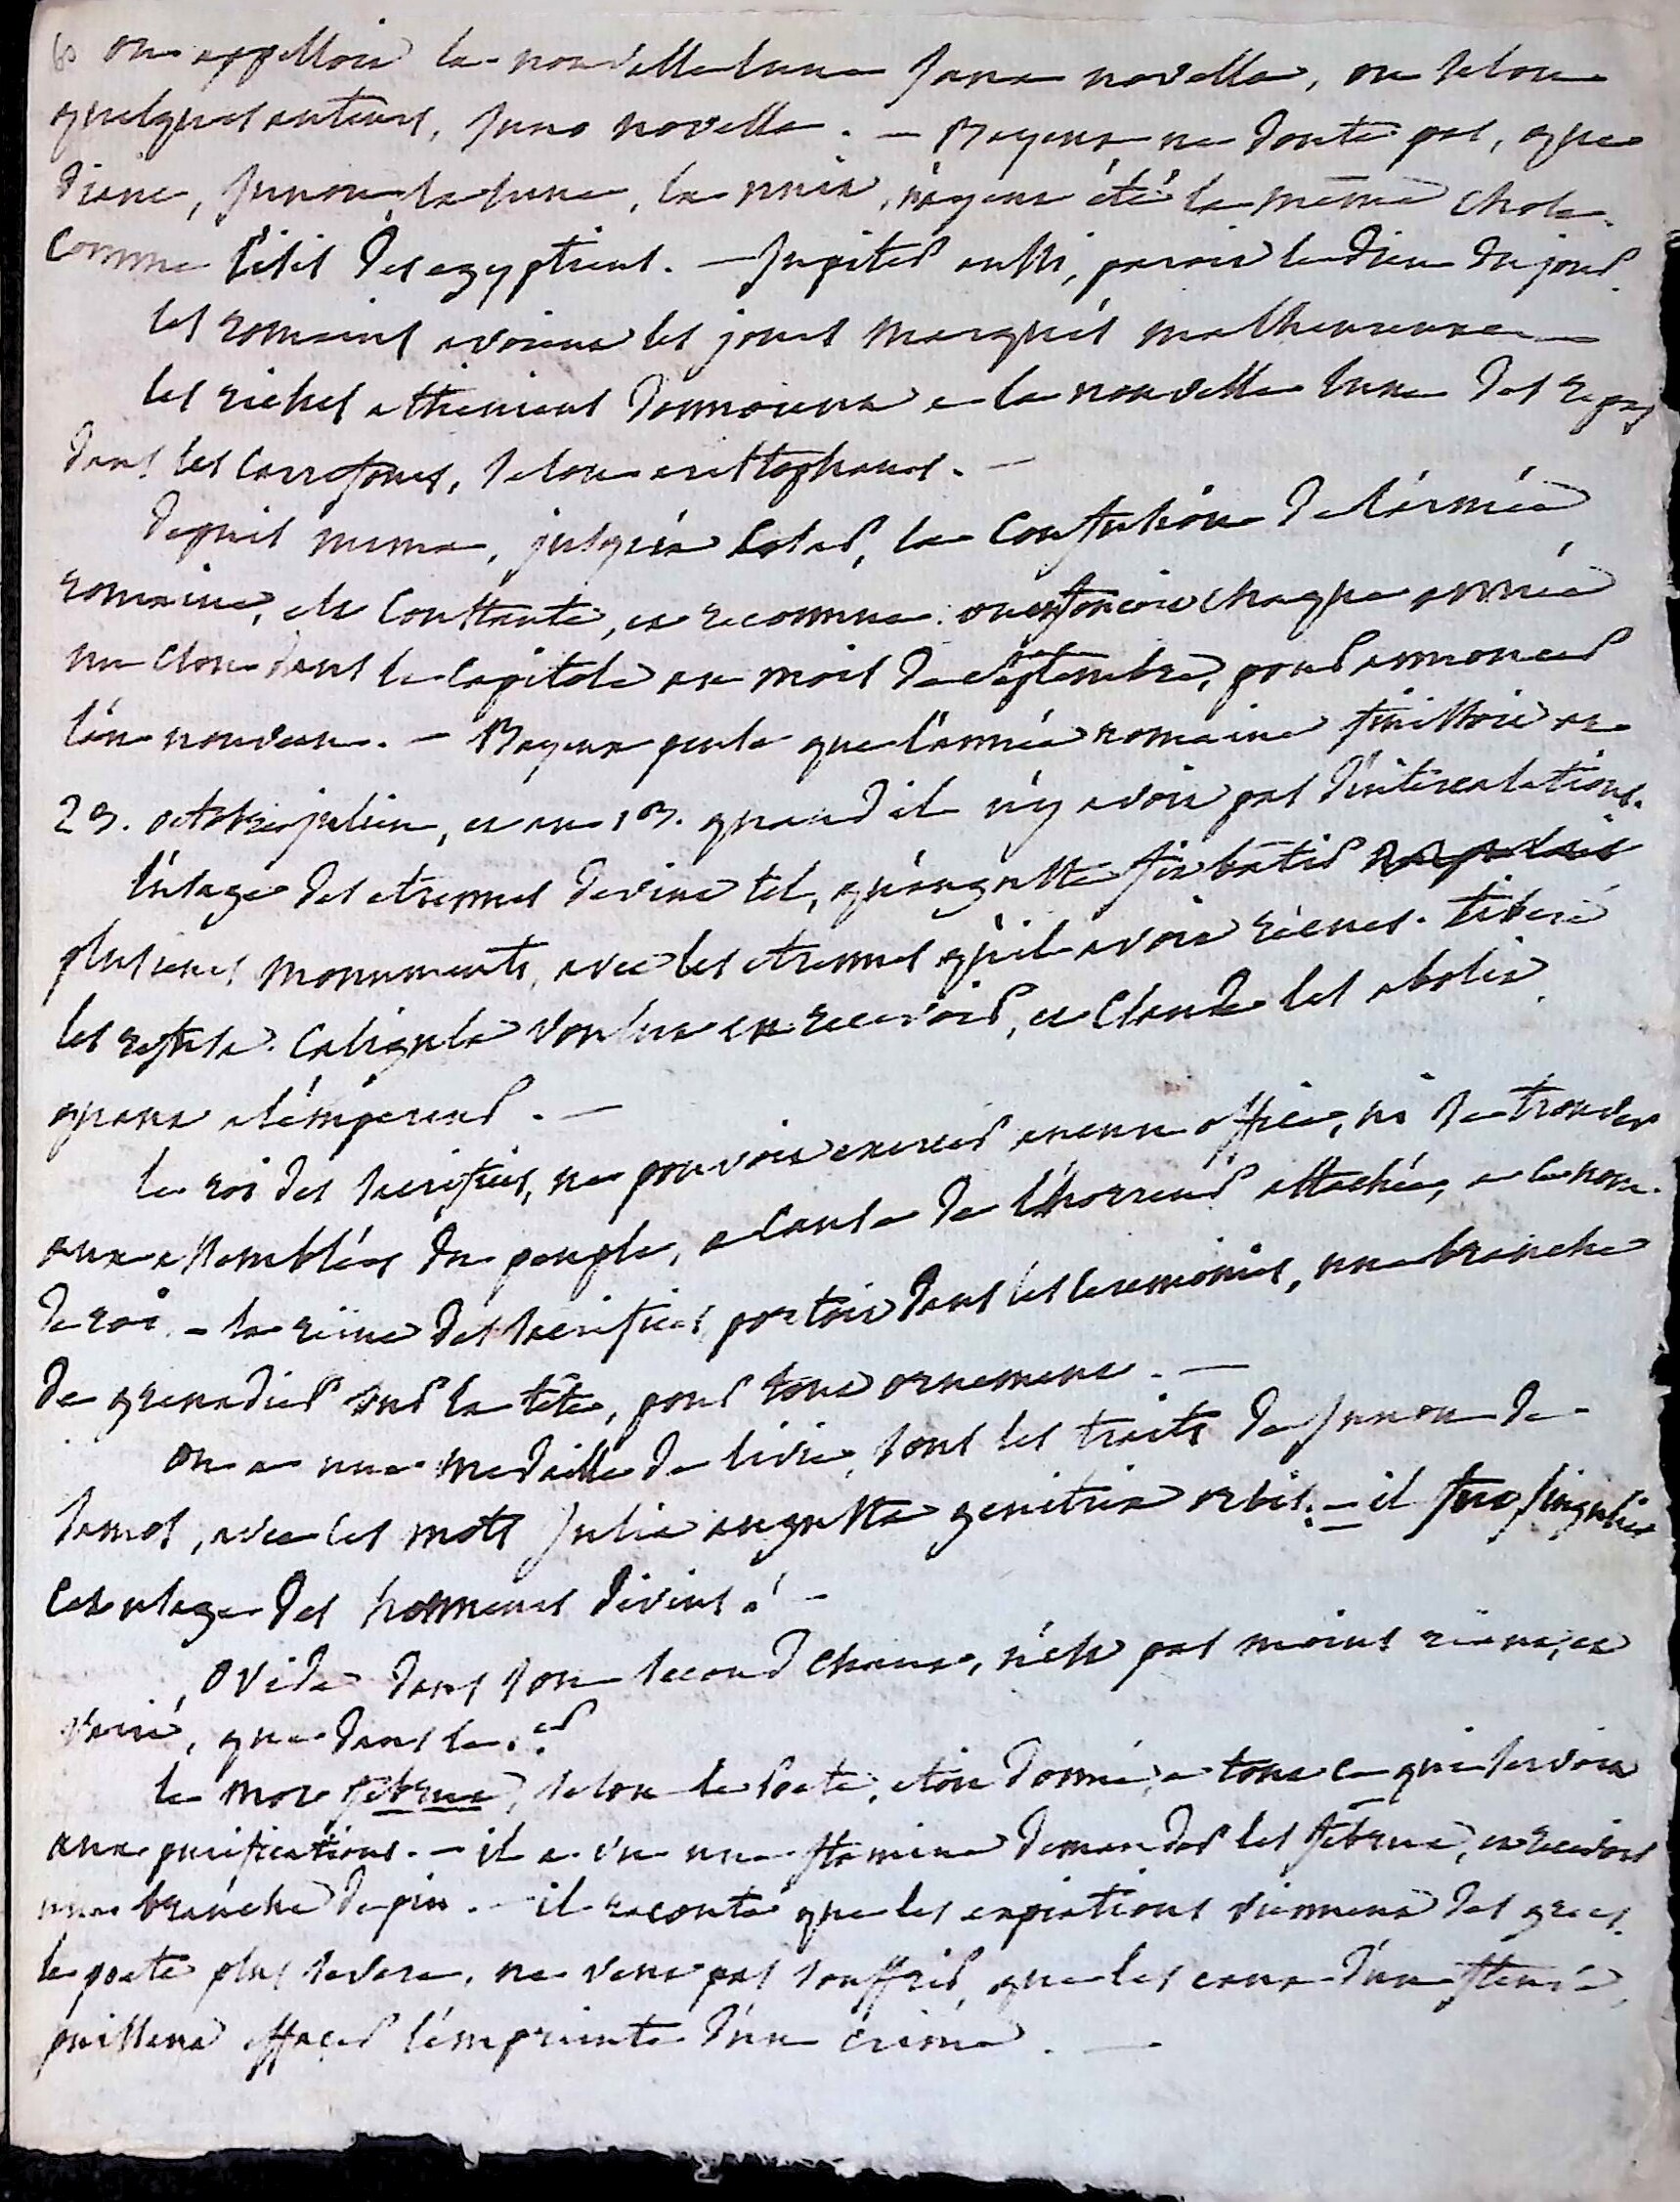 on appelloit la nouvelle lune Jana novella, ou selon
quelques auteurs, Juno novella. — Bayeux ne doute pas, que
diane, Junon, la lune, la nuit, n'ayent été la même chose.
comme l'isis des egyptiens. — Jupiter aussi, paroit le dieu du jour.
les romains avoient les jours marqués malheureux —
les riches atheniens donnoient a la nouvelle lune des repas
dans les carrefours, selon aristophanes. —
depuis numa, jusqu'à Cesar, la confusion de l'année
romaine, est constante, et reconnue. on enfoncoit chaque année
un clou dans le capitole au mois de septembre, pour annoncer
l'an nouveau. — Bayeux pense que l'année romaine finissoit au
23. octobre julien, et au 13. quand il n'y avoit pas d'intercalations.
l'usage des etrennes devint tel, qu'auguste fit bâtir
plusieurs monuments, avec les etrennes qu'il avoit reçues. tibere
les refusa. Caligula voulut en recevoir, et Claude les abolit
quant a l'empereur. —
le roi des sacrifices, ne pouvoit exercer aucun office, ni se trouver
aux assemblées du peuple, a cause de l'horreur attachée, a le nom
de roi. — la reine des sacrifices portoit dans les ceremonies, une branche
de grenadier sur la tête, pour tout ornement. —
on a une medaille de livie, sous les traits de Junon de
samos, avec les mots Julia augusta genitrix orbis. — il fut singulier
cet usage des honneurs divins! —
ovide dans son second chant, n'est pas moins riant, et
varié, que dans le 1.er
le mot februa, selon le Poete, etoit donné, a tout ce qui servoit
aux purifications. — il a vu une flamine demander les februa, et recevoir
une branche de pin. — il raconte que les expiations viennent des grecs.
le poete plus severe, ne veut pas souffrir, que les eaux d'un fleuve,
puissent effacer l'empreinte d'un crime. —